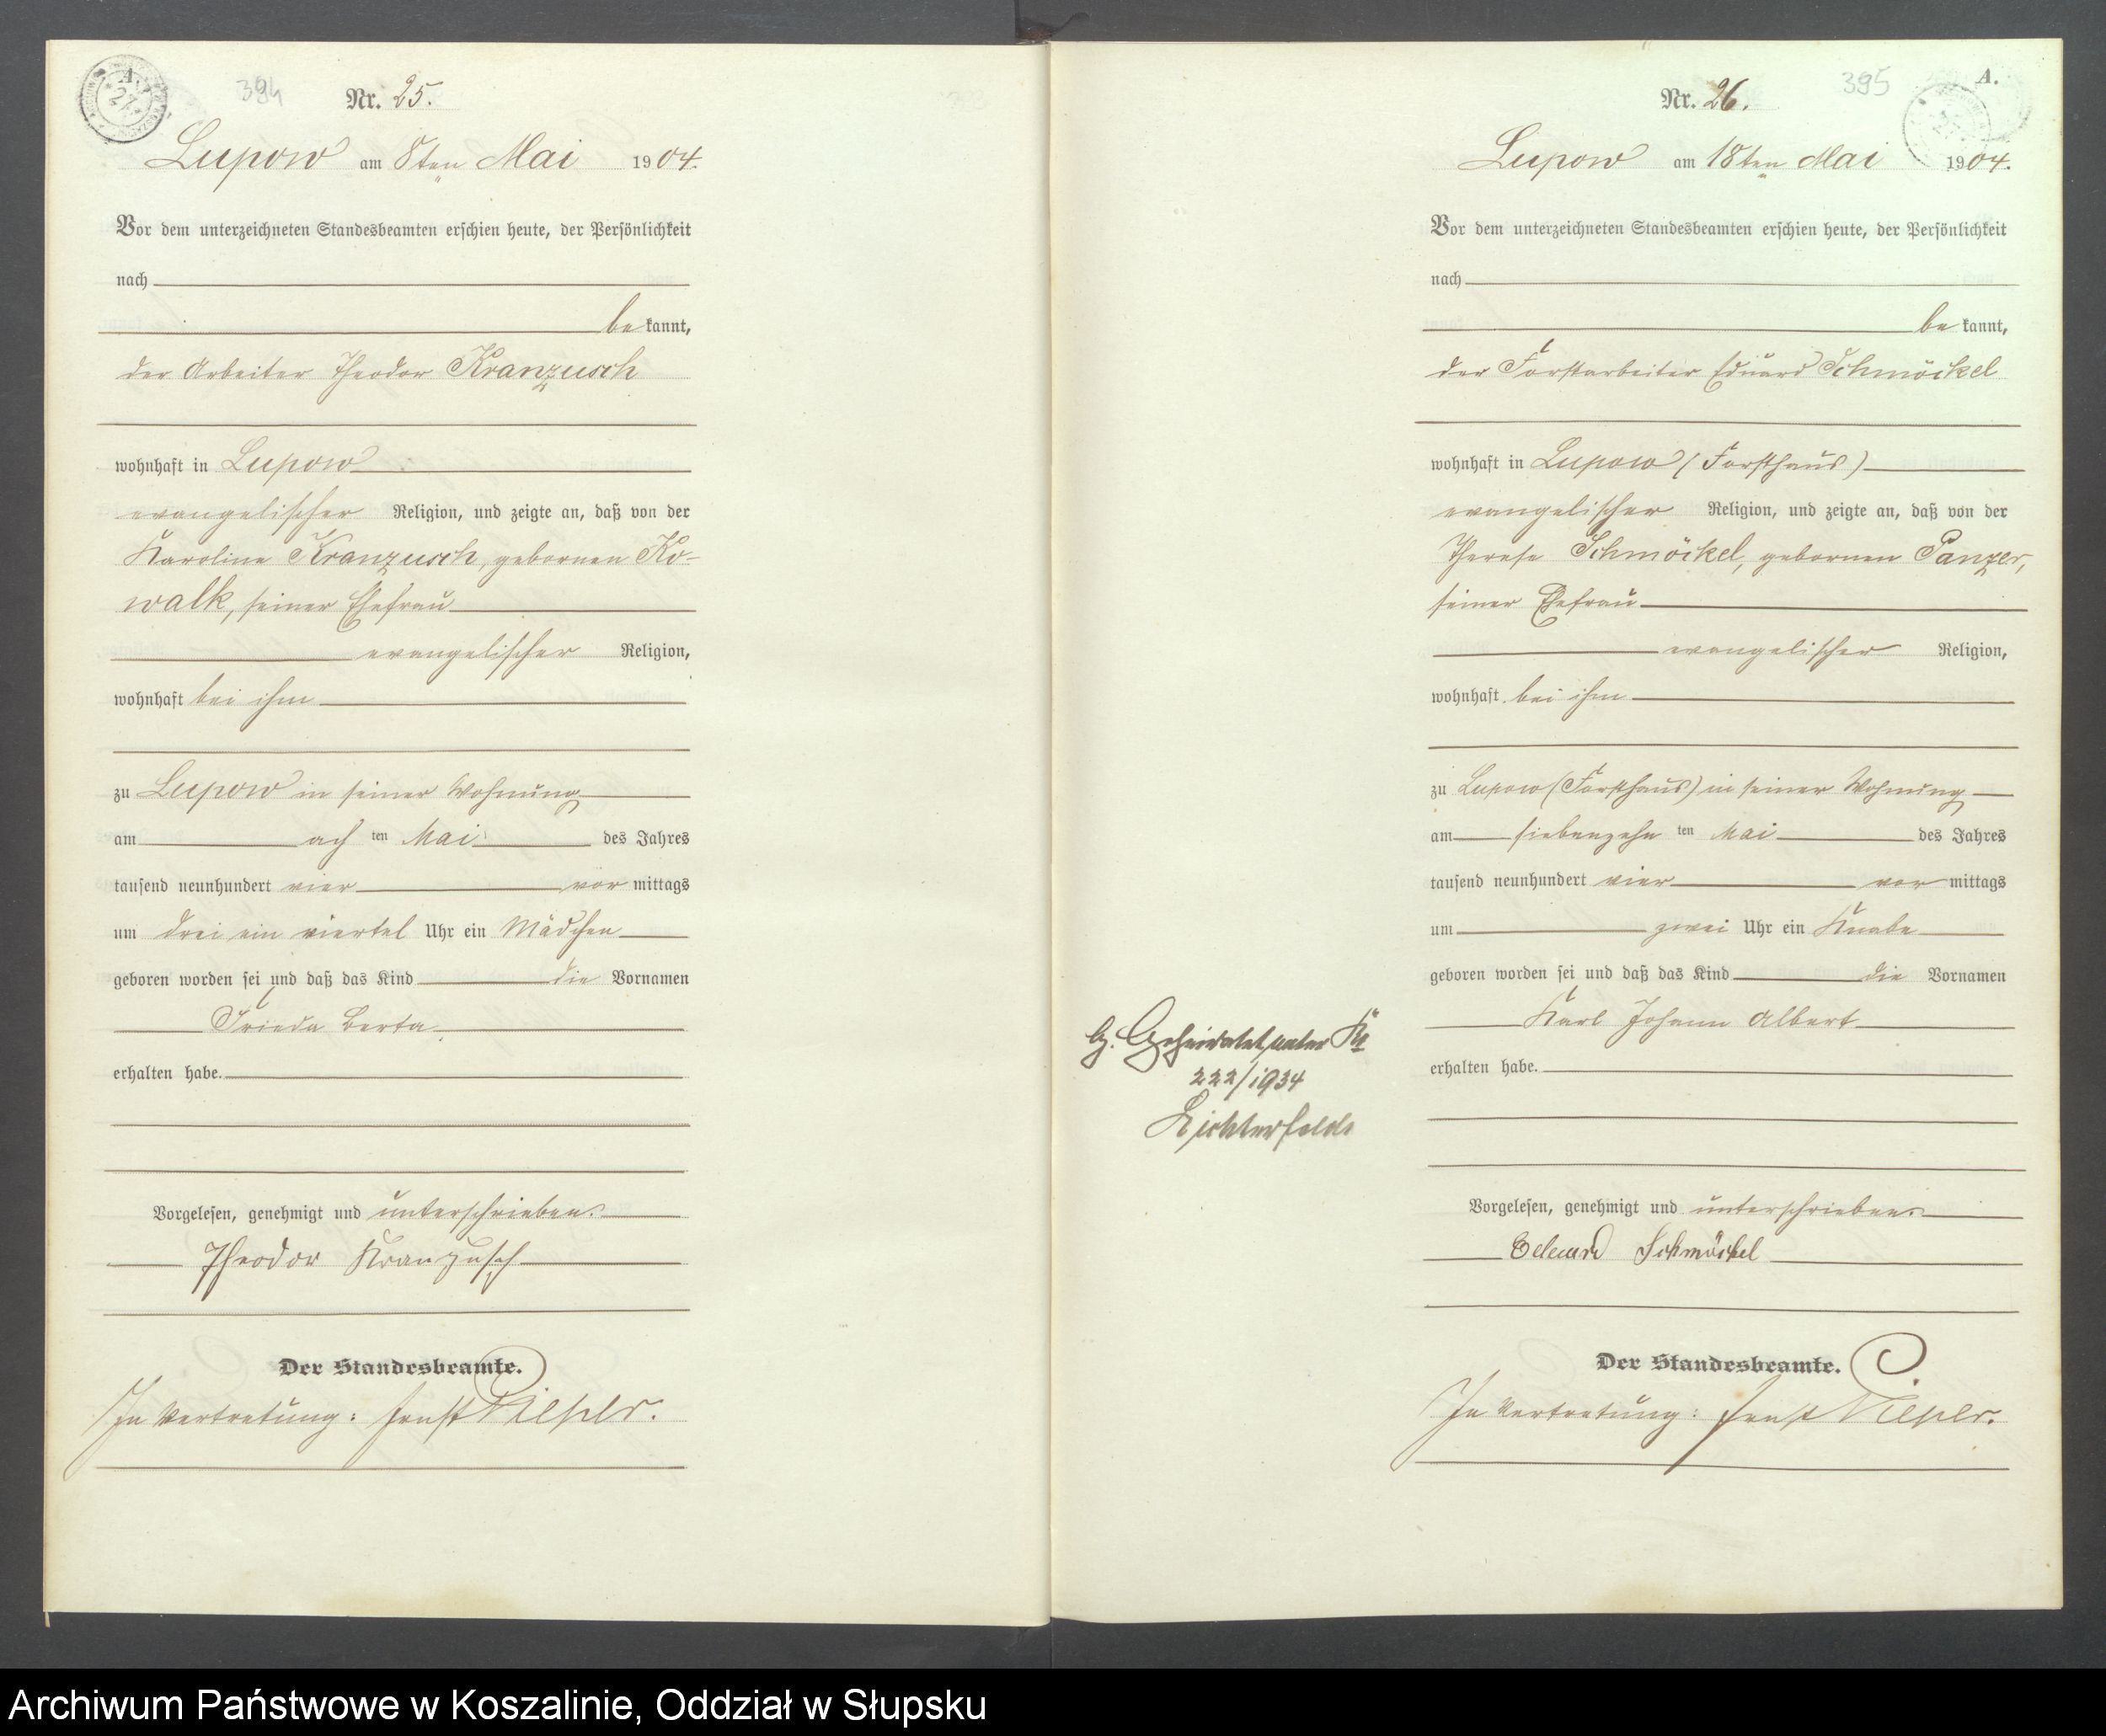 A.
394
Nr. 25.
Lupow am 8ten Mai 1904.
Vor dem unterzeichneten Standesbeamten erschien heute, der Persönlichkeit
nach
be kannt,
der Arbeiter Theodor Kranzusch
wohnhaft in Lupow
evangelischer Religion, und zeigte an, daß von der
Karoline Kranzusch, gebornen Ko-
walk, seiner Ehefrau
evangelischer Religion,
wohnhaft bei ihm
zu Lupow in seiner Wohnung
am ach ten Mai des Jahres
tausend neunhundert vier vor mittags
um drei ein viertel Uhr ein Mädchen
geboren worden sei und daß das Kind die Vornamen
Frieda Berta
erhalten habe.
Vorgelesen, genehmigt und unterschrieben.
Theodor Kranzusch
Der Standesbeamte.
In Vertretung: Ernst Pieper.
395
A.
Nr. 26.
Lupow am 18ten Mai 1904.
Vor dem unterzeichneten Standesbeamten erschien heute, der Persönlichkeit
nach
be kannt,
der Forstarbeiter Eduard Schmöckel
wohnhaft in Lupow (Forsthaus)
evangelischer Religion, und zeigte an, daß von der
Therese Schmöckel, gebornen Panzer,
seiner Ehefrau
evangelischer Religion,
wohnhaft bei ihm
zu Lupow (Forsthaus) in seiner Wohnung
am siebenzehn ten Mai des Jahres
tausend neunhundert vier vor mittags
um zwei Uhr ein Knabe
geboren worden sei und daß das Kind die Vornamen
Karl Johann Albert
erhalten habe.
Geheiratet unter Nr
222/1934
Lichterfelde
Vorgelesen, genehmigt und unterschrieben.
Eduard Schmöckel
Der Standesbeamte.
In Vertretung: Ernst Pieper.
Archiwum Państwowe w Koszalinie, Oddział w Słupsku